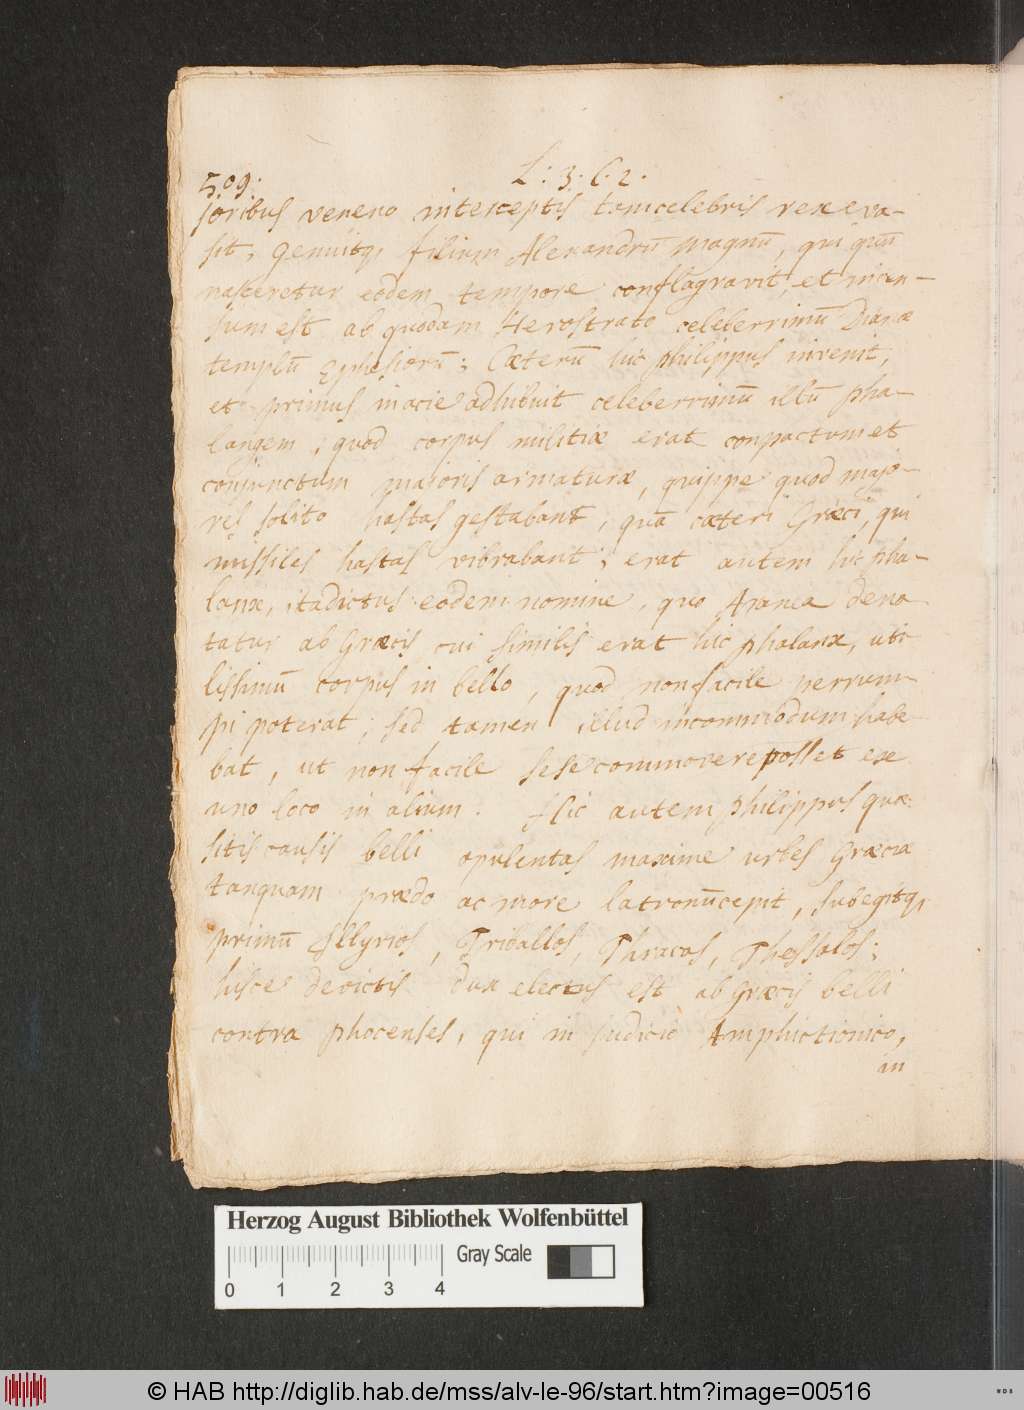 509.
L: 3. C. 2.
soribus veneno interceptis tam celebris rex eva-
sit, genuitq, filium Alexandrū magnū, qui quū
nasceretur eodem tempore conflagravit, et incen-
sum est ab quodam Herostrato celeberrimū Dianæ
templū Ephesiorū; Cæterū hic philippus invenit,
et primus in acie adhibuit celeberrimū illū pha-
langem, quod corpus militiæ erat conpactum et
conjunctum majoris armaturæ, quippe quod majo-
res solito hastas gestabant, quā cæteri Græci, qui
missiles hastas vibrabant; erat autem hic pha-
lanx, ita dictus eodem nomine, quo Aranea deno
tatur ab Græcis cui similis erat hic phalanx, uti
lissimū corpus in bello, quod non facile perrum-
pi poterat; sed tamen illud incommodum habe
bat, ut non facile sese commovere posset ex
uno loco in alium. Hic autem philippus quæ
sitis causis belli opulentas maxime urbes Græciæ
tanquam prædo ac more latronū cepit, subegitq,
primū Illyrios, Triballos, Thracas, Thessalos;
hisce devictis dux electus est ab Græcis belli
contra phocenses, qui in judicio Amphictionico,
in
Herzog August Bibliothek Wolfenbüttel
Gray Scale
0 1 2 3 4
© HAB http://diglib.hab.de/mss/alv-le-96/start.htm?image=00516